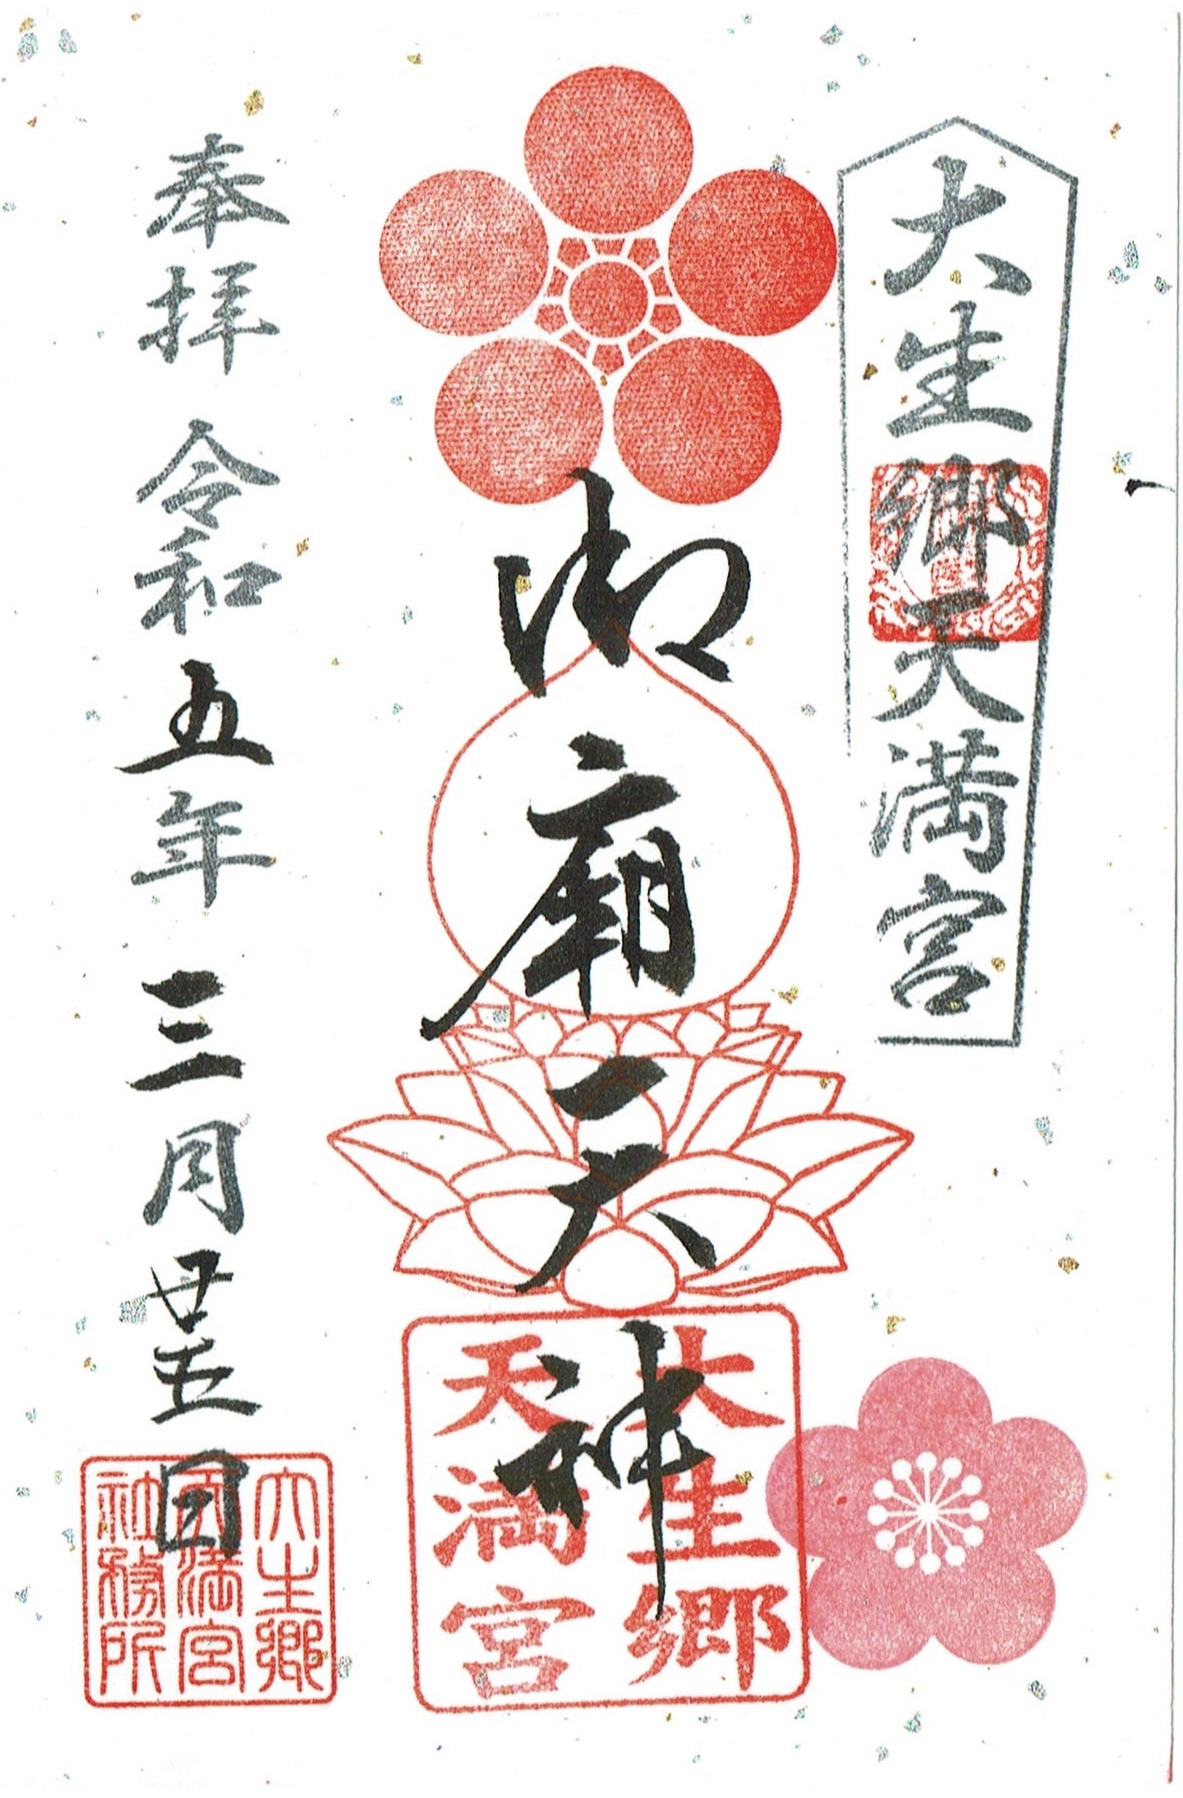 大生郷天満宮
御廟天神
大生郷
天満宮
奉拝 令和五年三月廿五日
大生郷
天満宮
社務所